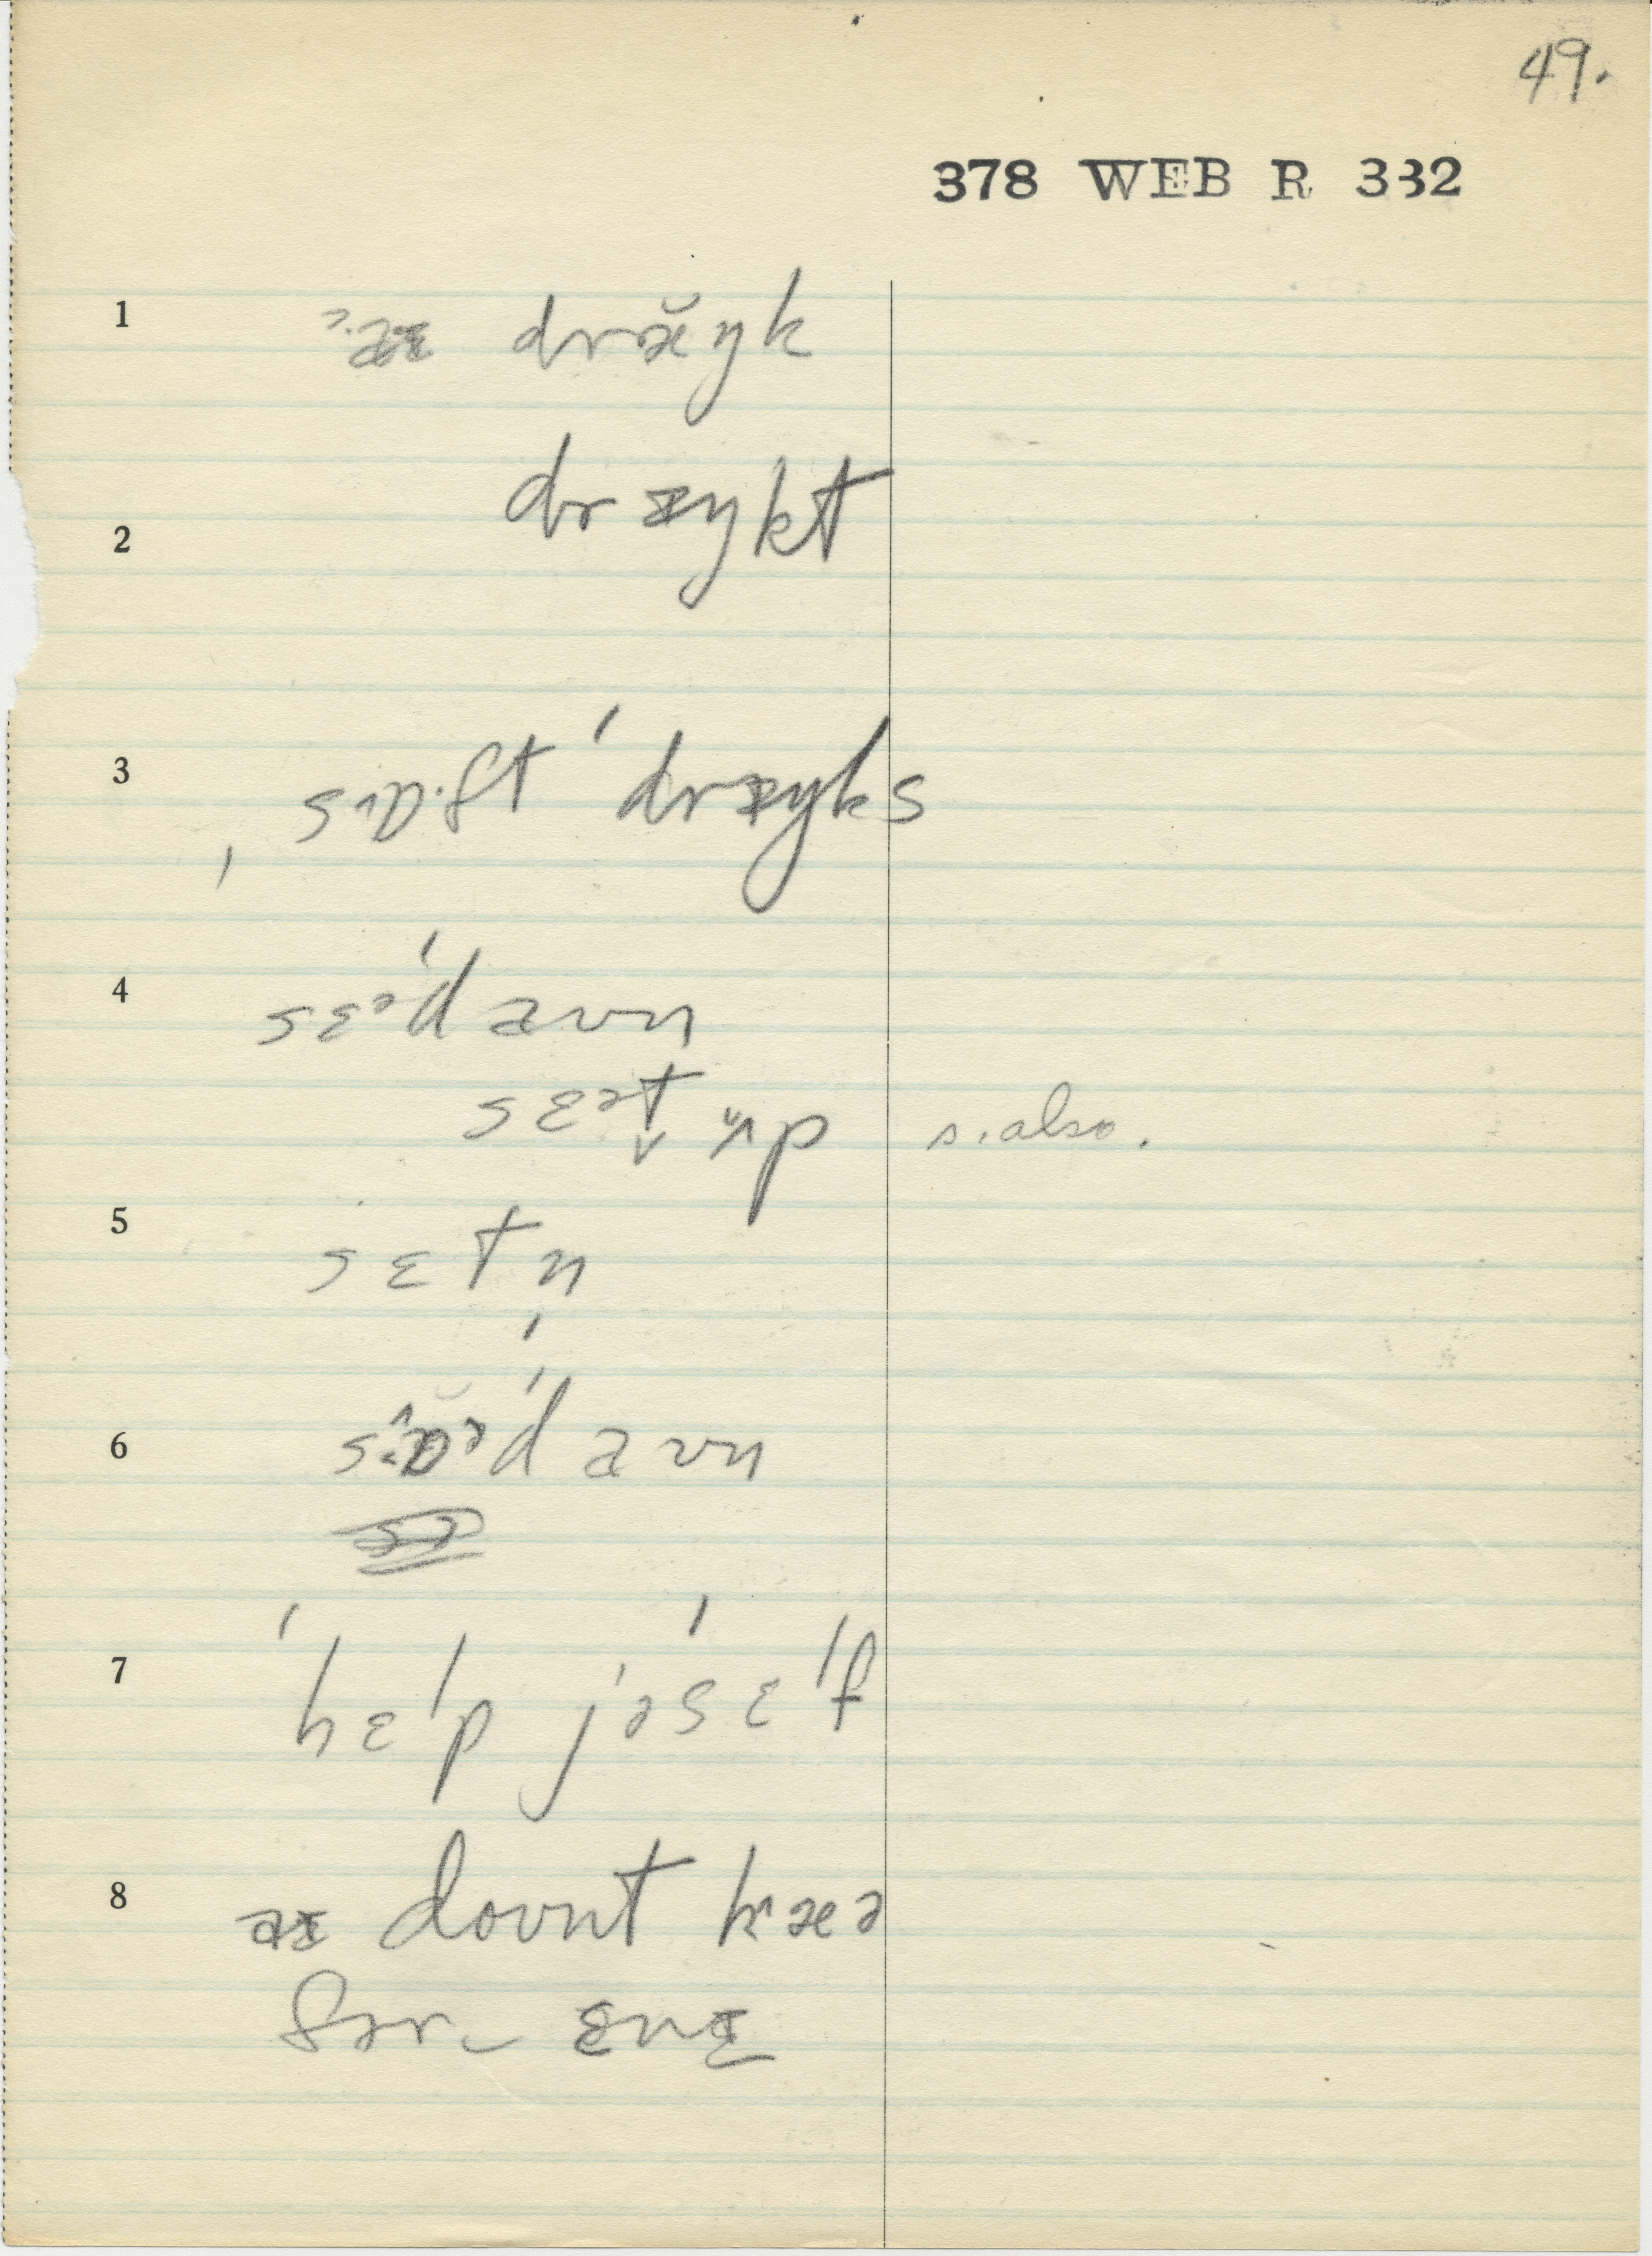 49.
378 WEB R 332
1 dræ̆ŋk
2 drɪŋkt
3 sɒ·ft ˈdrɪŋks
4 sɛᵊˈdaʊn
sɛᵊt ʌp s. also.
5 sɛtn
6 daʊn
7 ˈhɛlp jəˈsɛlf
8 aɪ doʊnt kæə
fər ɛnɪ